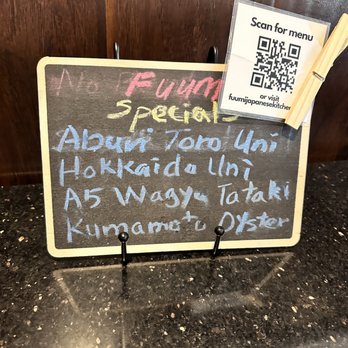 Scan for menu
or visit
fuumijapanesekitchen
Fuum
Specials
Aburi Toro Uni
Hokkaido Uni
A5 Wagyu Tataki
Kumamoto Oyster